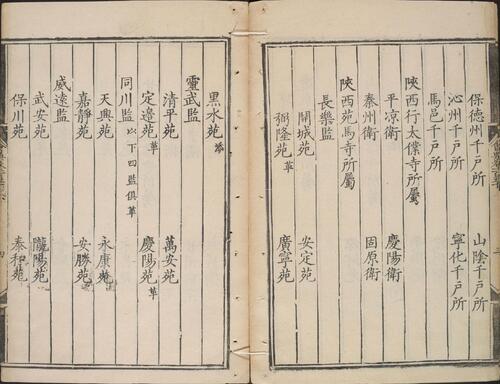 保德州千戶所 山陰千戶所
沁州千戶所 寧化千戶所
馬邑千戶所
陝西行太僕寺所屬
平凉衛 慶陽衛
秦州衛 固原衛
陝西苑馬寺所屬
長樂監
開城苑 安定苑
弼隆苑革 廣寧苑
黑水苑革
靈武監
清平苑 萬安苑
定邊苑革 慶陽苑革
同川監以下四監俱革
天興苑 永康苑
嘉靜苑 安勝苑
威遠監
武安苑 隴陽苑
保川苑 泰和苑